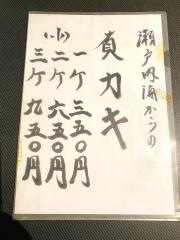 瀬戸内海からの
真カキ
(小)
一ケ 三五〇円
二ケ 六五〇円
三ケ 九五〇円